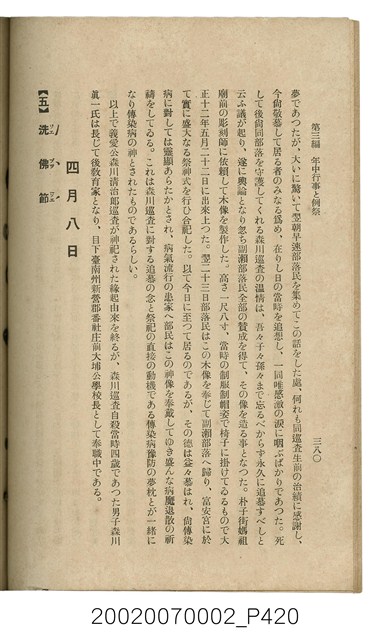 第三編 年中行事と例祭
三八〇
夢であつたが、大いに驚いて翌朝早速部落民を集めてこの話をした處、何れも同巡査生前の治績に感謝し、
今尙敬慕して居る者のみなる爲め、在りし日の當時を追想し、一同唯感激の淚に咽ぶばかりであつた。死
して後尙同部落を守護してくれる森川巡査の溫情は、吾々子々孫々まで忘るべからず永久に追慕すべしと
云ふ議が起り、遂に輿論となり忽ち副瀨部落民全部の賛成を得て、その像を造る事となつた。朴子街媽祖
廟前の彫刻師に依賴して木像を製作した。高さ一尺八寸、當時の制服制帽姿で椅子に掛けてゐるもので大
正十二年五月二十二日に出來上つた。翌二十三日部落民はこの木像を奉じて副瀨部落へ歸り、富安宮に於
て實に盛大なる祭神式を行ひ合祀した。以て今日に至つて居るのであるが、その德は益々慕はれ、尙傳染
病に對しては靈顯あらたかとされ、病氣流行の患家へ部民はこの神像を奉戴してゆき盛んな病魔退散の祈
禱をしてゐる。これは森川巡査に對する追慕の念と祭祀の直接の動機である傳染病豫防の夢枕とが一緖に
なり傳染病の神とされたものであるらしい。
以上で義愛公森川淸治郞巡査が神祀された緣起由來を終るが、森川巡査自殺當時四歲であつた男子森川
眞一氏は長じて後敎育家となり、目下臺南州新營郡番社庄前大埔公學校長として奉職中である。
四月八日
【五】 洗佛節
20020070002_P420